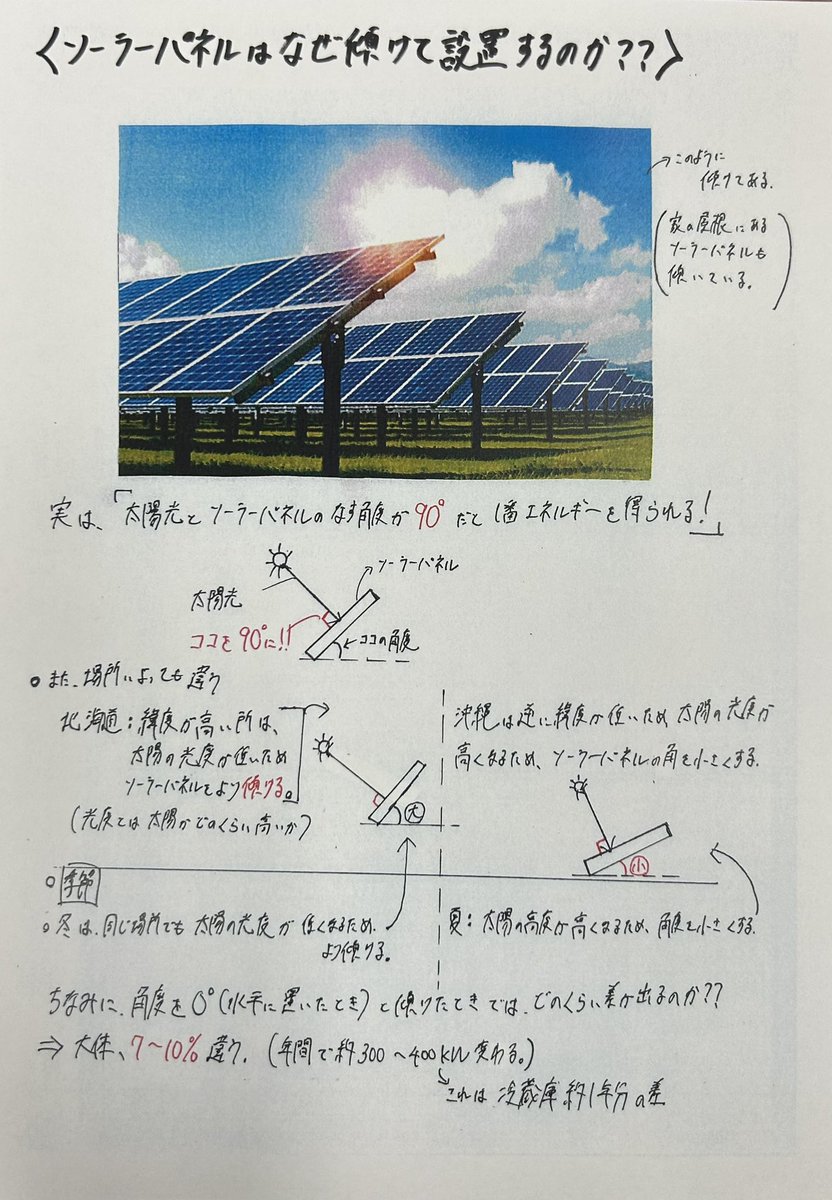 〈ソーラーパネルはなぜ傾けて設置するのか??〉
→このように
傾けてある。
(家の屋根にある
ソーラーパネルも
傾いている。)
実は、「太陽光とソーラーパネルのなす角度が90°だと1番エネルギーを得られる!」
ソーラーパネル
太陽光
ココを90°に!!
ココの角度
○また、場所によっても違う
北海道:緯度が高い所は、
太陽の光度が低いため
ソーラーパネルをより傾ける。
(光度とは太陽がどのくらい高いか)
大
沖縄は逆に緯度が低いため太陽の光度が
高くなるため、ソーラーパネルの角を小さくする。
小
○季節
○冬は、同じ場所でも太陽の光度が低くなるため、
より傾ける。
夏:太陽の高度が高くなるため、角度を小さくする。
ちなみに、角度を0°(水平に置いたとき)と傾けたときでは、どのくらい差が出るのか??
⇒大体、7〜10%違う。(年間で約300〜400kW変わる。)
これは冷蔵庫約1年分の差